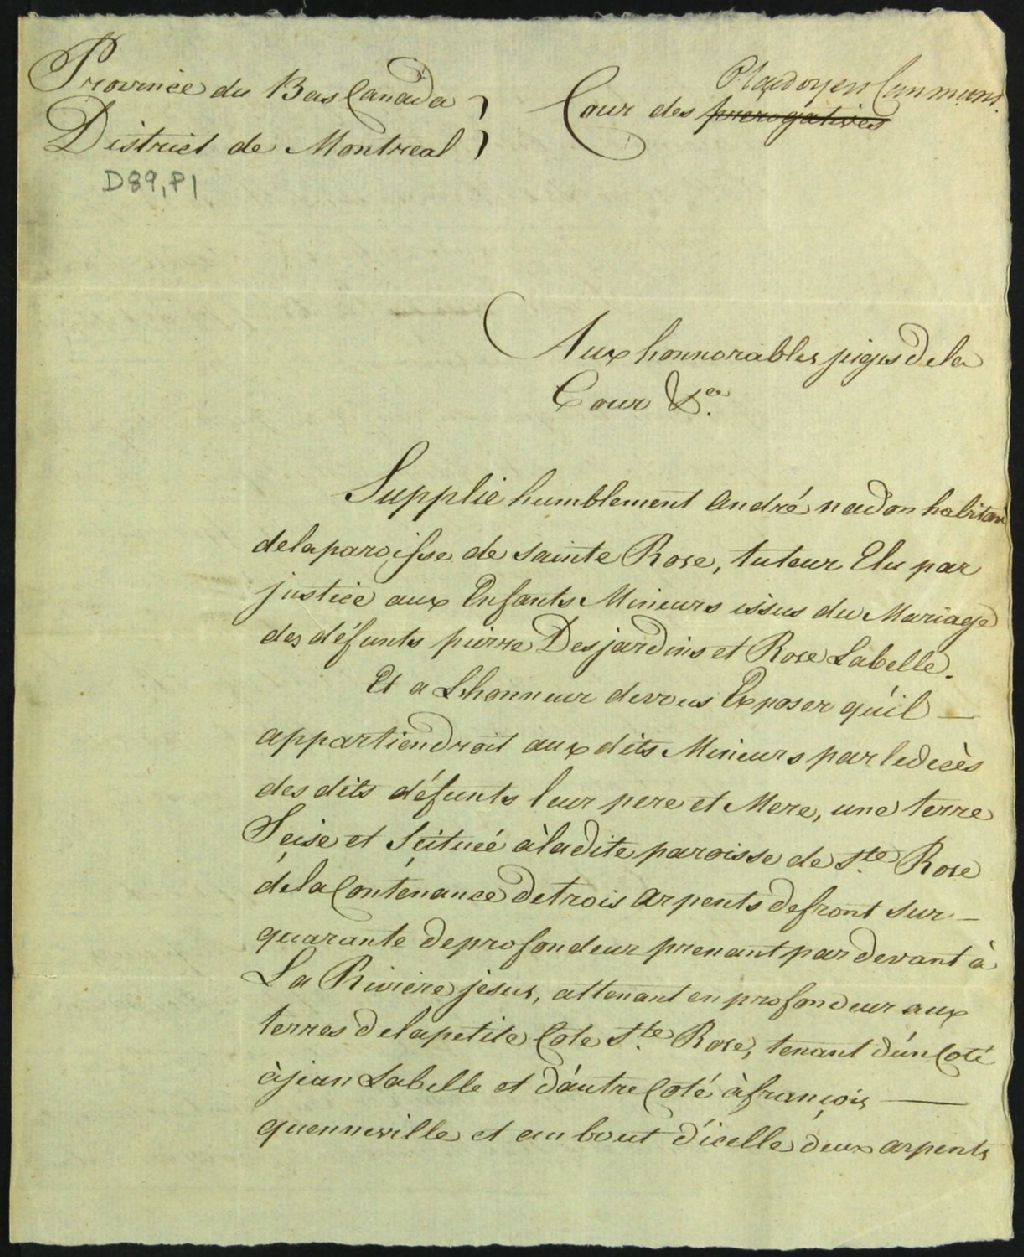 Province du Bas Canada
District de Montreal
D89, P1
Plaidoyers Communs.
Cour des prerogatives
Aux honnorables juges de la
Cour &a.
Supplie humblement andré nadon habitant
de la paroisse de sainte Rose, tuteur Elu par
justice aux Enfants Mineurs issus du Mariage
des défunts pierre Desjardins et Rose Labelle.
Et a Lhonneur de vous Exposer qu'il —
appartiendroit aux dits Mineurs par le decès
des dits défunts leur pere et Mere, une terre
Seise et Scituée à la dite paroisse de Ste. Rose
de la Contenance de trois arpents de front sur —
quarante de profondeur prenant par devant à
La Riviere jesus, attenant en profondeur aux
terres de la petite Cote Ste. Rose, tenant d'un Coté
à jean Labelle et d'autre Coté à françois —
quenneville et au bout d'icelle deux arpents